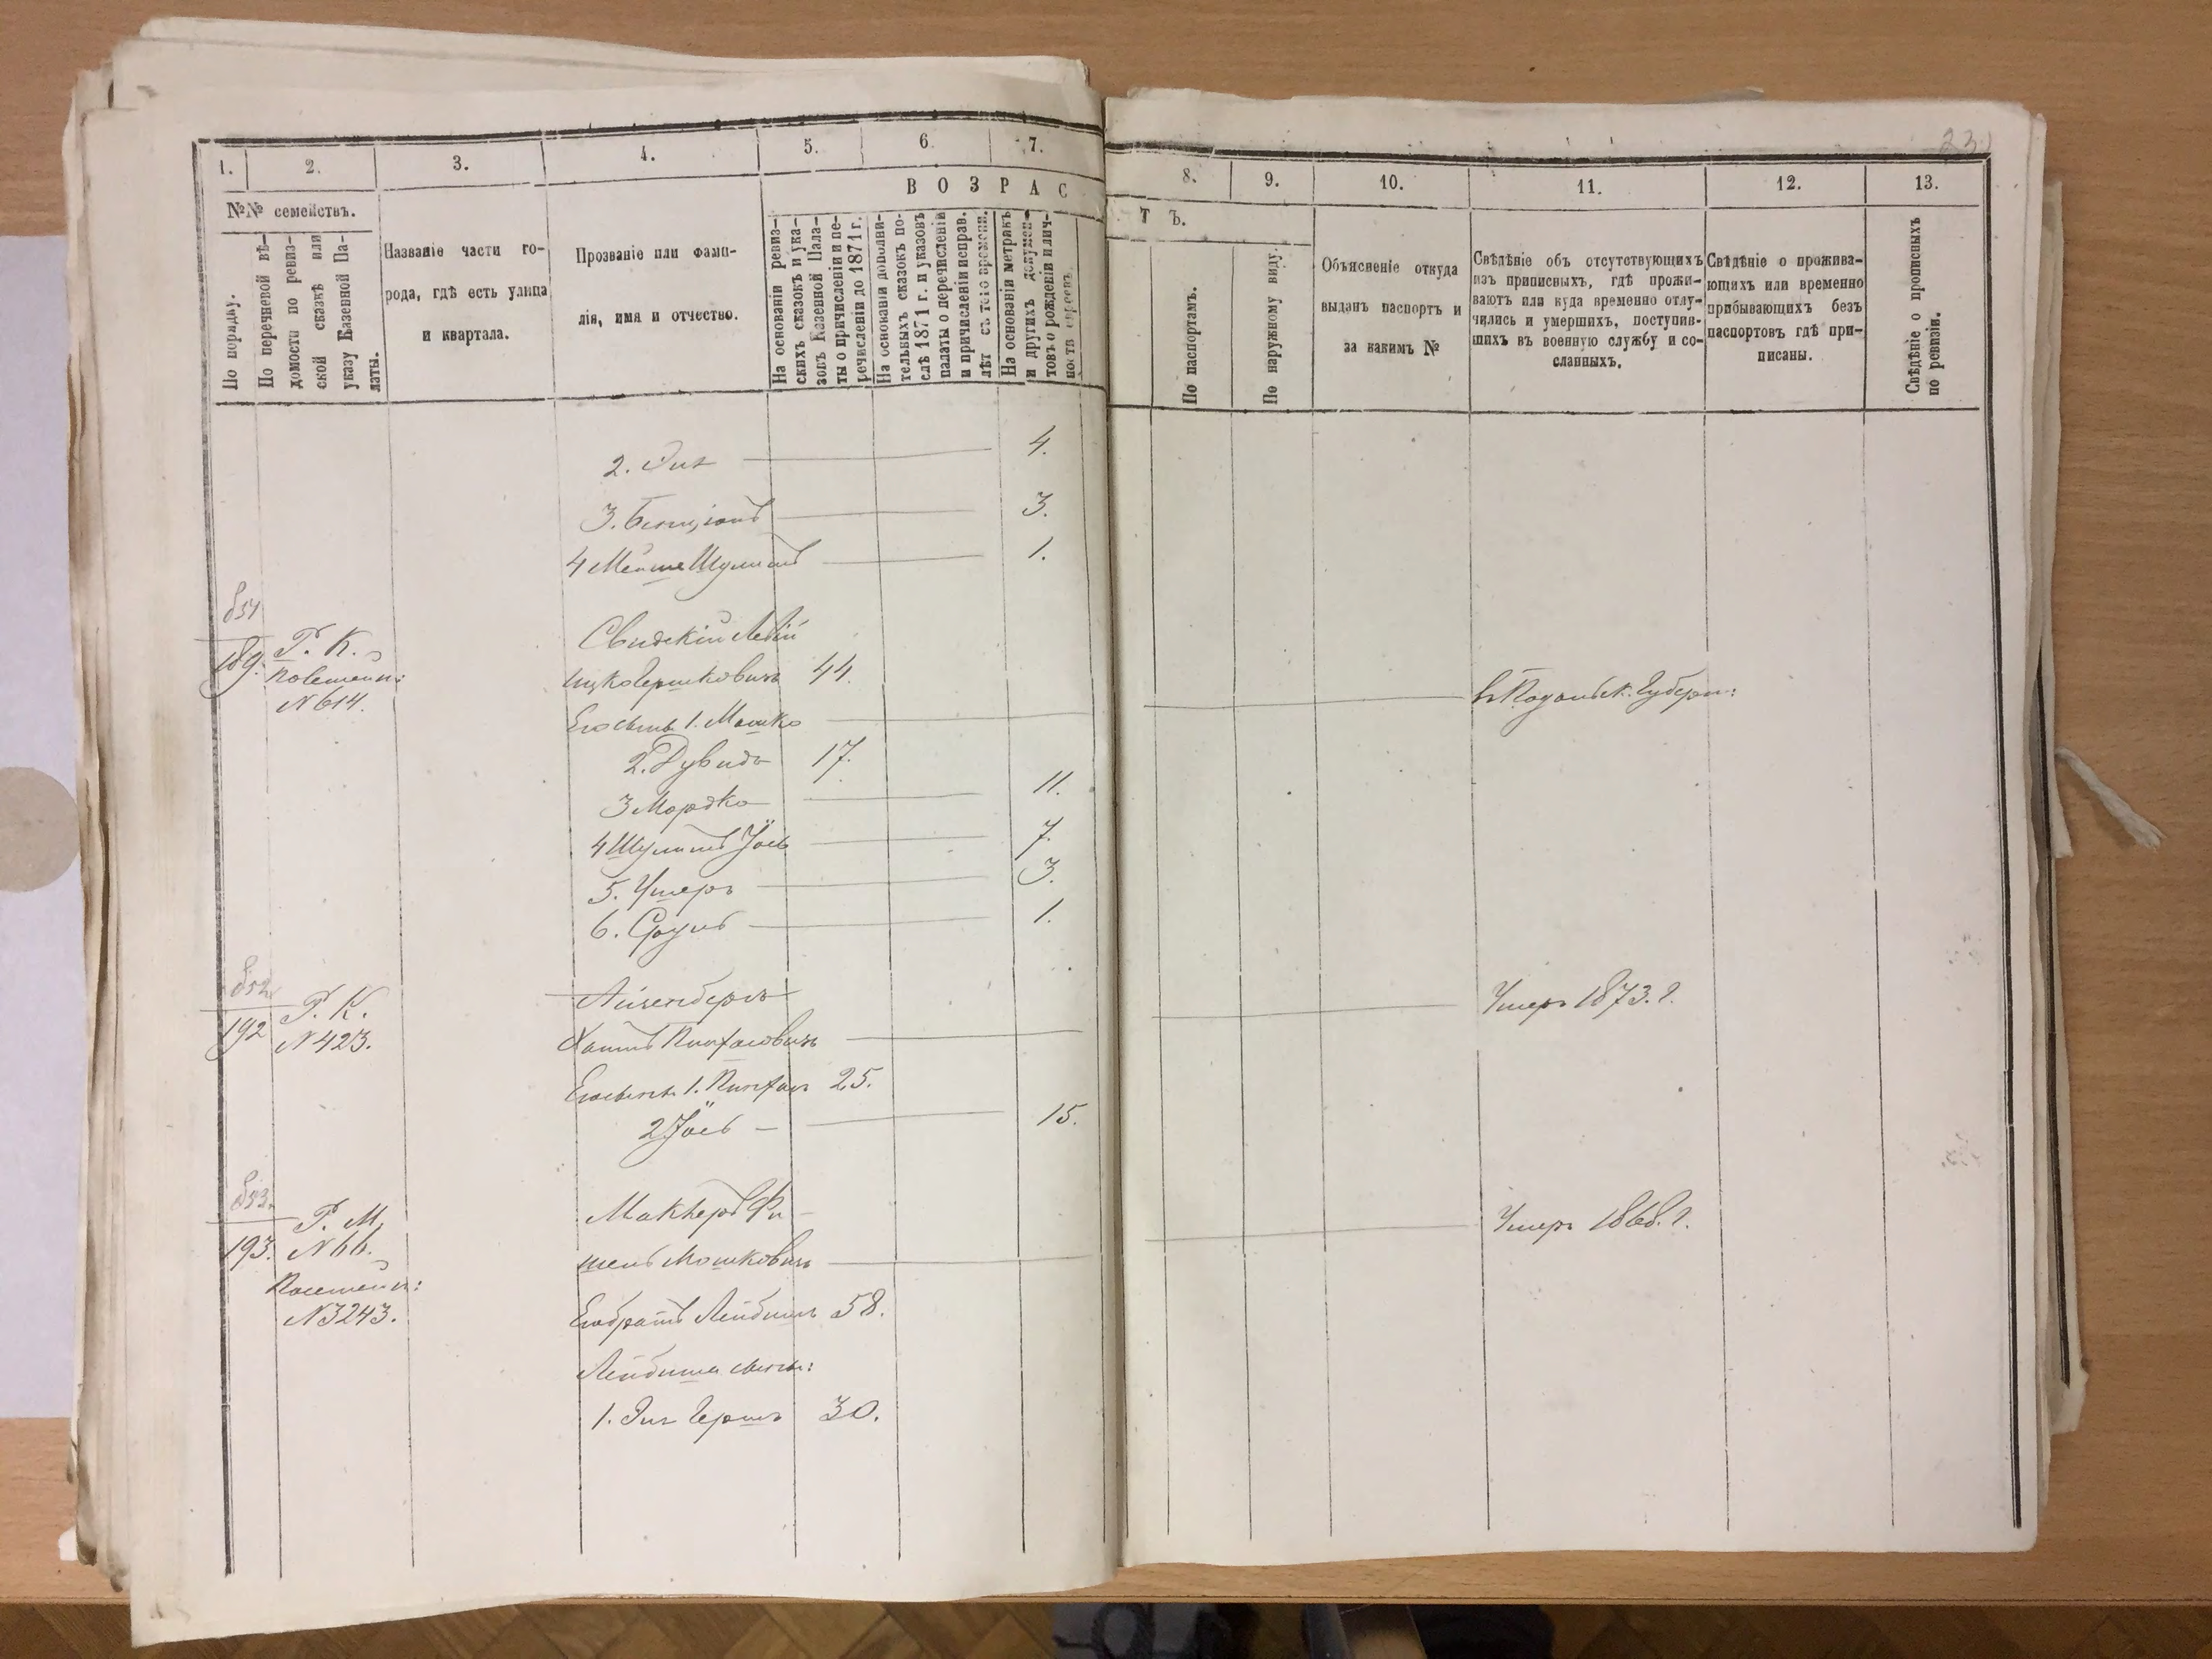 23
1.
2.
3.
4.
5.
6
7.
8.
9.
10.
11.
12.
13.
№№ семействъ.
В О З Р А С
Т Ъ.
По порядку.
По перечневой вѣ-
домости по ревиз-
ской сказкѣ или
указу Казенной Па-
латы.
Названіе части го-
рода, гдѣ есть улица
и квартала.
Прозваніе или фами-
лія, имя и отчество.
На основаніи ревиз-
скихъ сказокъ и ука-
зовъ Казенной Пала-
ты о причисленіи и пе-
речисленіи до 1871 г.
На основаніи дополни-
тельныхъ сказокъ по-
слѣ 1871 г. и указовъ
палаты о перечисленіи
и причисленіи исправ.
лѣт съ того времени.
На основаніи метрикъ
и другихъ докумен-
товъ о рожденіи и лич-
ности евреевъ.
По паспортамъ.
По наружному виду.
Объясненіе откуда
выданъ паспортъ и
за какимъ №
Свѣдѣніе объ отсутствующихъ
изъ приписныхъ, гдѣ прожи-
ваютъ или куда временно отлу-
чились и умершихъ, поступив-
шихъ въ военную службу и со-
сланныхъ.
Свѣдѣніе о прожива-
ющихъ или временно
прибывающихъ безъ
паспортовъ гдѣ при-
писаны.
Свѣдѣніе о прописныхъ
по ревизіи.
2. Эля 4.
3. Бенціонъ 3.
4 Мейше Шулимъ 1.
851
189. Р. К. Свидскій Лейви
Ицко Гершковичъ 44.
N 614.
в Подольск. Губерн:
Его сынъ 1. Мошко
2. Дувидъ 17.
3 Мордко 11.
4 Шулимъ Іось 7.
5. Ушеръ 3.
6. Сруль 1.
852
192 Р. К. Айзенбергъ
N 423. Хаимъ Пинхасовичъ
Умеръ 1873. г.
Его сынъ 1. Пинхасъ 25.
2 Іось 15.
853.
193. Р. М. Маклеръ Фи-
N 66. шель Мошковичъ
Умеръ 1868. г.
N 3243. Его братъ Лейбишъ 58.
Лейбиша сынъ:
1. Эля Гершъ 30.